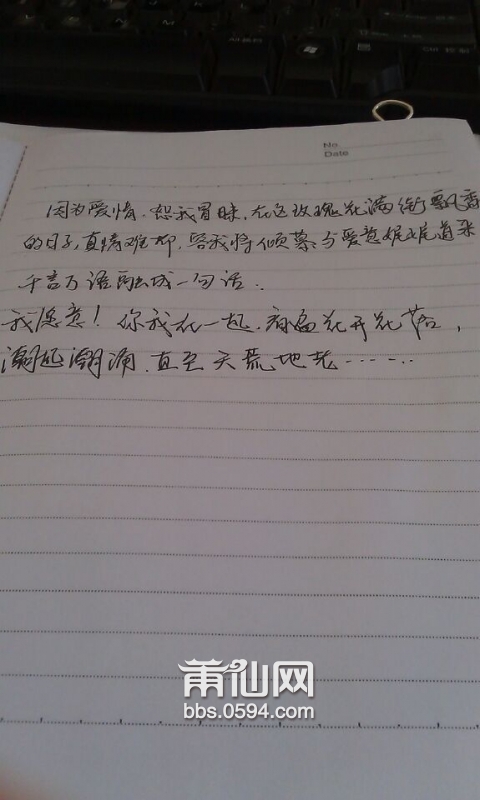 No
Date
因为爱情,恕我冒昧,在这玫瑰花满街飘香
的日子,真情难抑,容我将倾慕与爱意娓娓道来
千言万语融成一句话.
我愿意!你我在一起,看遍花开花落,
潮起潮涌,直至天荒地老……
莆仙网
bbs.0594.com